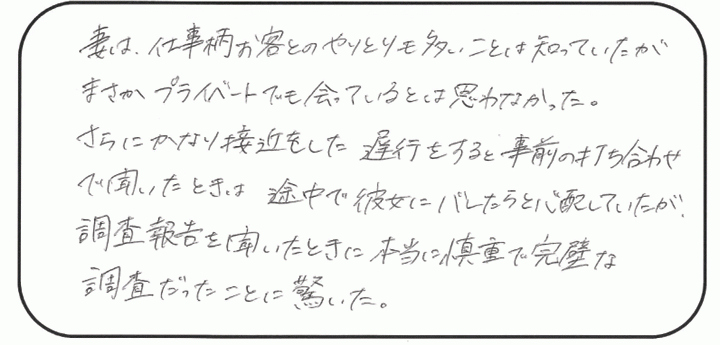 妻は、仕事柄お客とのやりとりも多いことは知っていたが
まさかプライベートでも会っているとは思わなかった。
さらにかなり接近をした遅行をすると事前の打ち合わせ
で聞いたときは 途中で彼女にバレたらと心配していたが、
調査報告を聞いたときに本当に慎重で完璧な
調査だったことに驚いた。